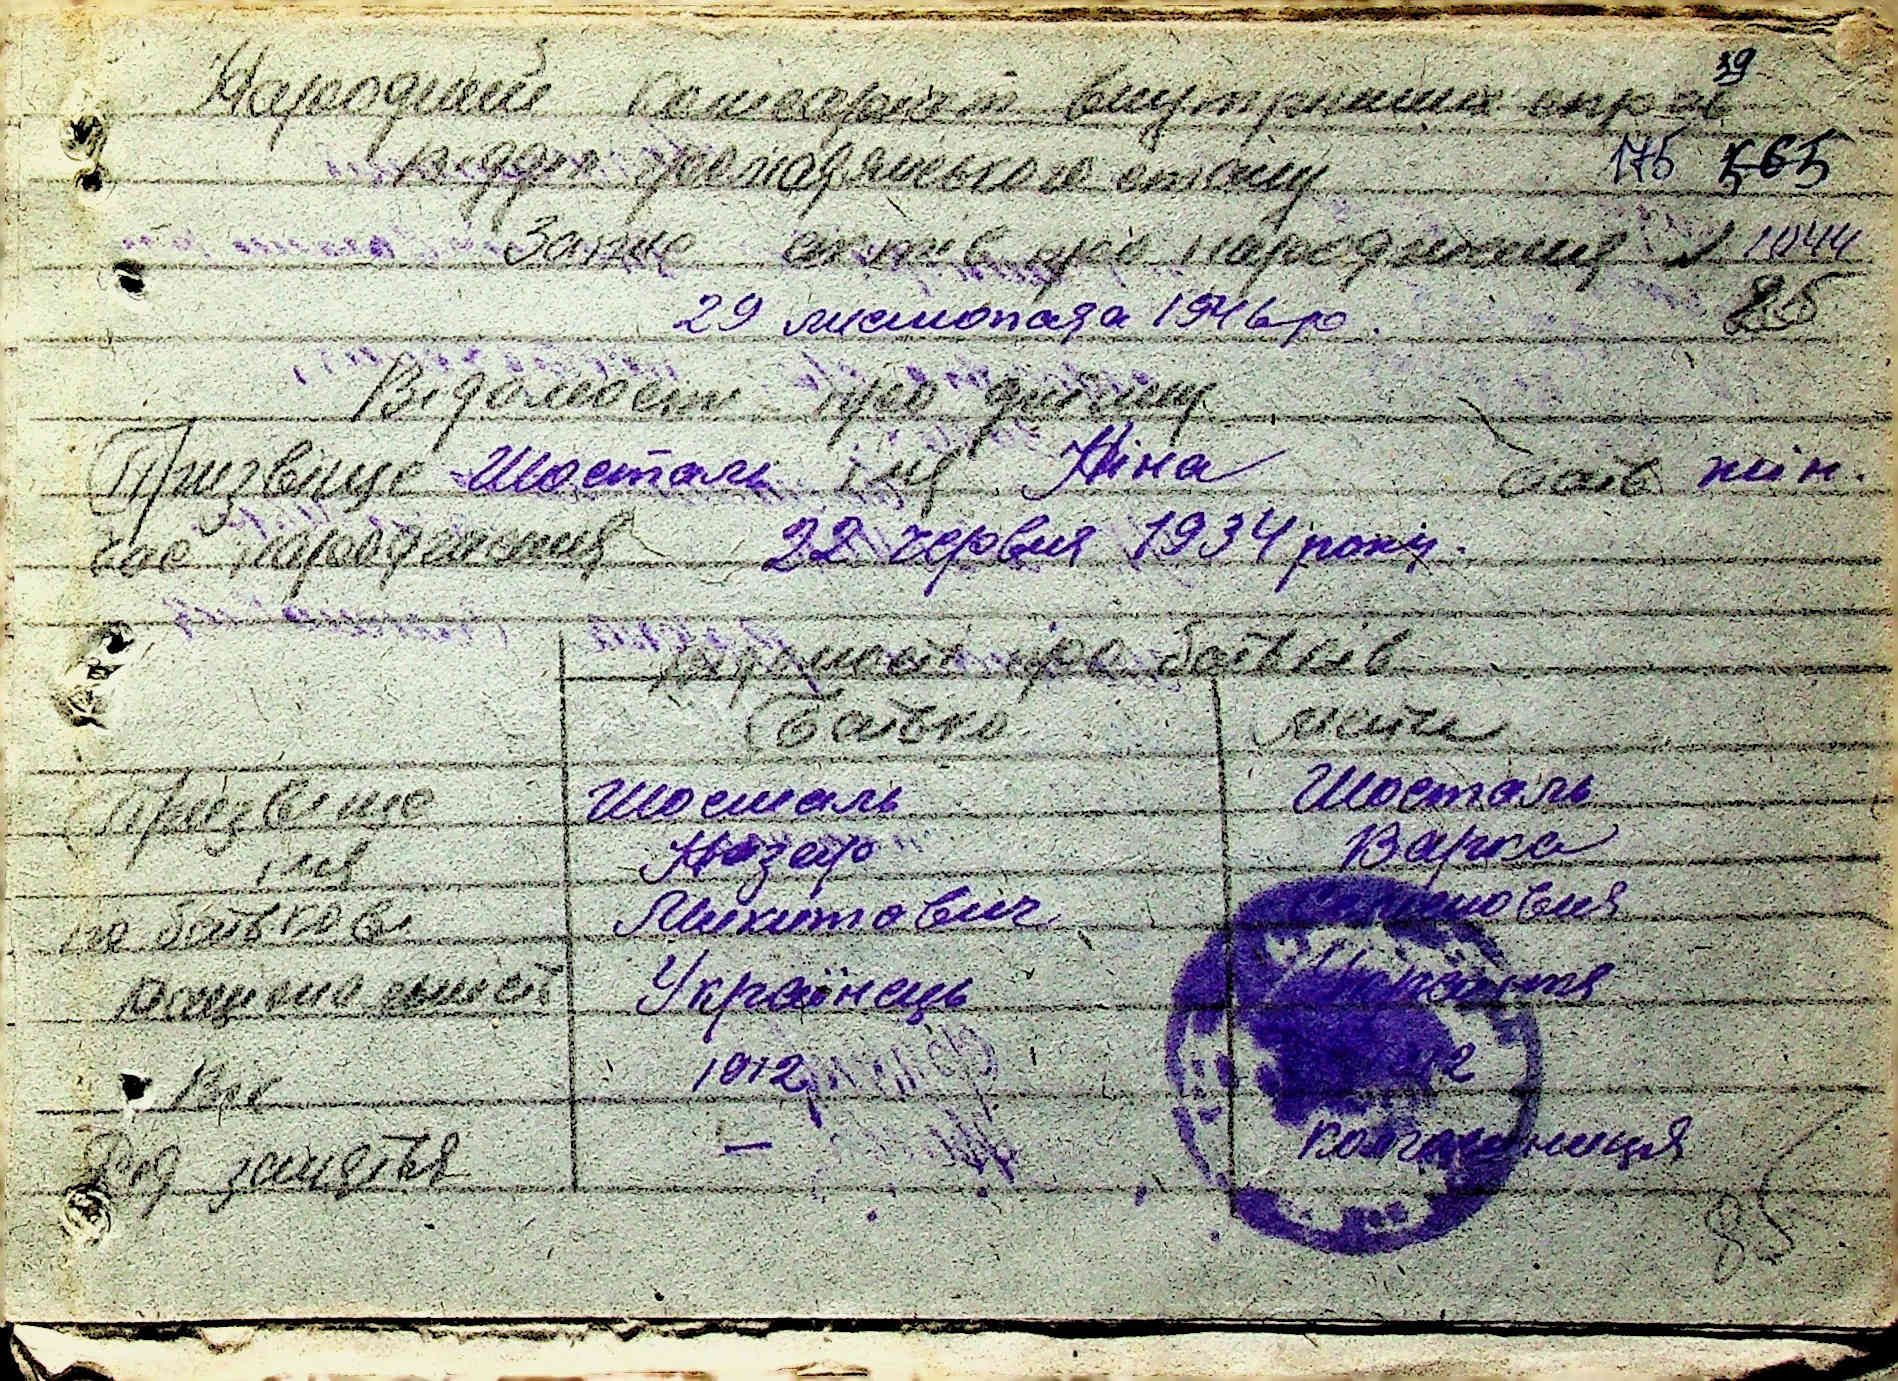 39
Народний Комісаріят внутрішніх справ
відділ громадянського стану 175 565
Запис актів про народження № 1044
29 листопада 1946 р. 25
Відомости про дитину
Призвіще Шосталь імя Ніна стать жін.
час народження 22 червня 1934 року.
відомость про батьків
Батько мати
Призвіще Шосталь Шосталь
імя Назар Варка
по батькові Микитович
національність Українець Українка
Вік 1912
Рід заняття — колгоспниця
85